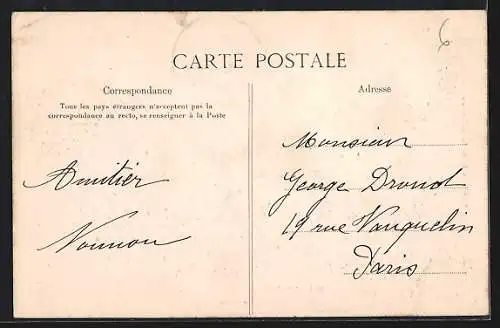 CARTE POSTALE
Correspondance
Tous les pays étrangers n'acceptent pas la
correspondance au recto, se renseigner à la Poste
Amitier
Adresse
Monsieur
George Drouot
19 rue Vauquelin
Paris